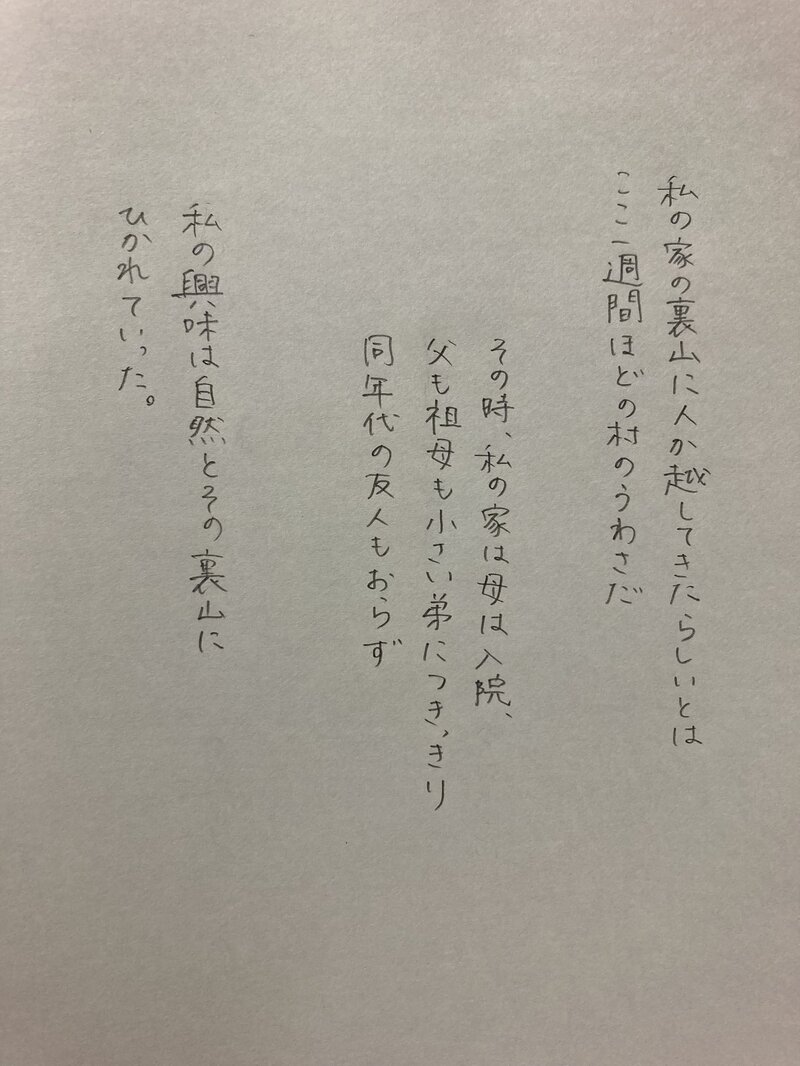 私の家の裏山に人か越してきたらしいとは
ここ一週間ほどの村のうわさだ
その時、私の家は母は入院、
父も祖母も小さい弟につきっきり
同年代の友人もおらず
私の興味は自然とその裏山に
ひかれていった。